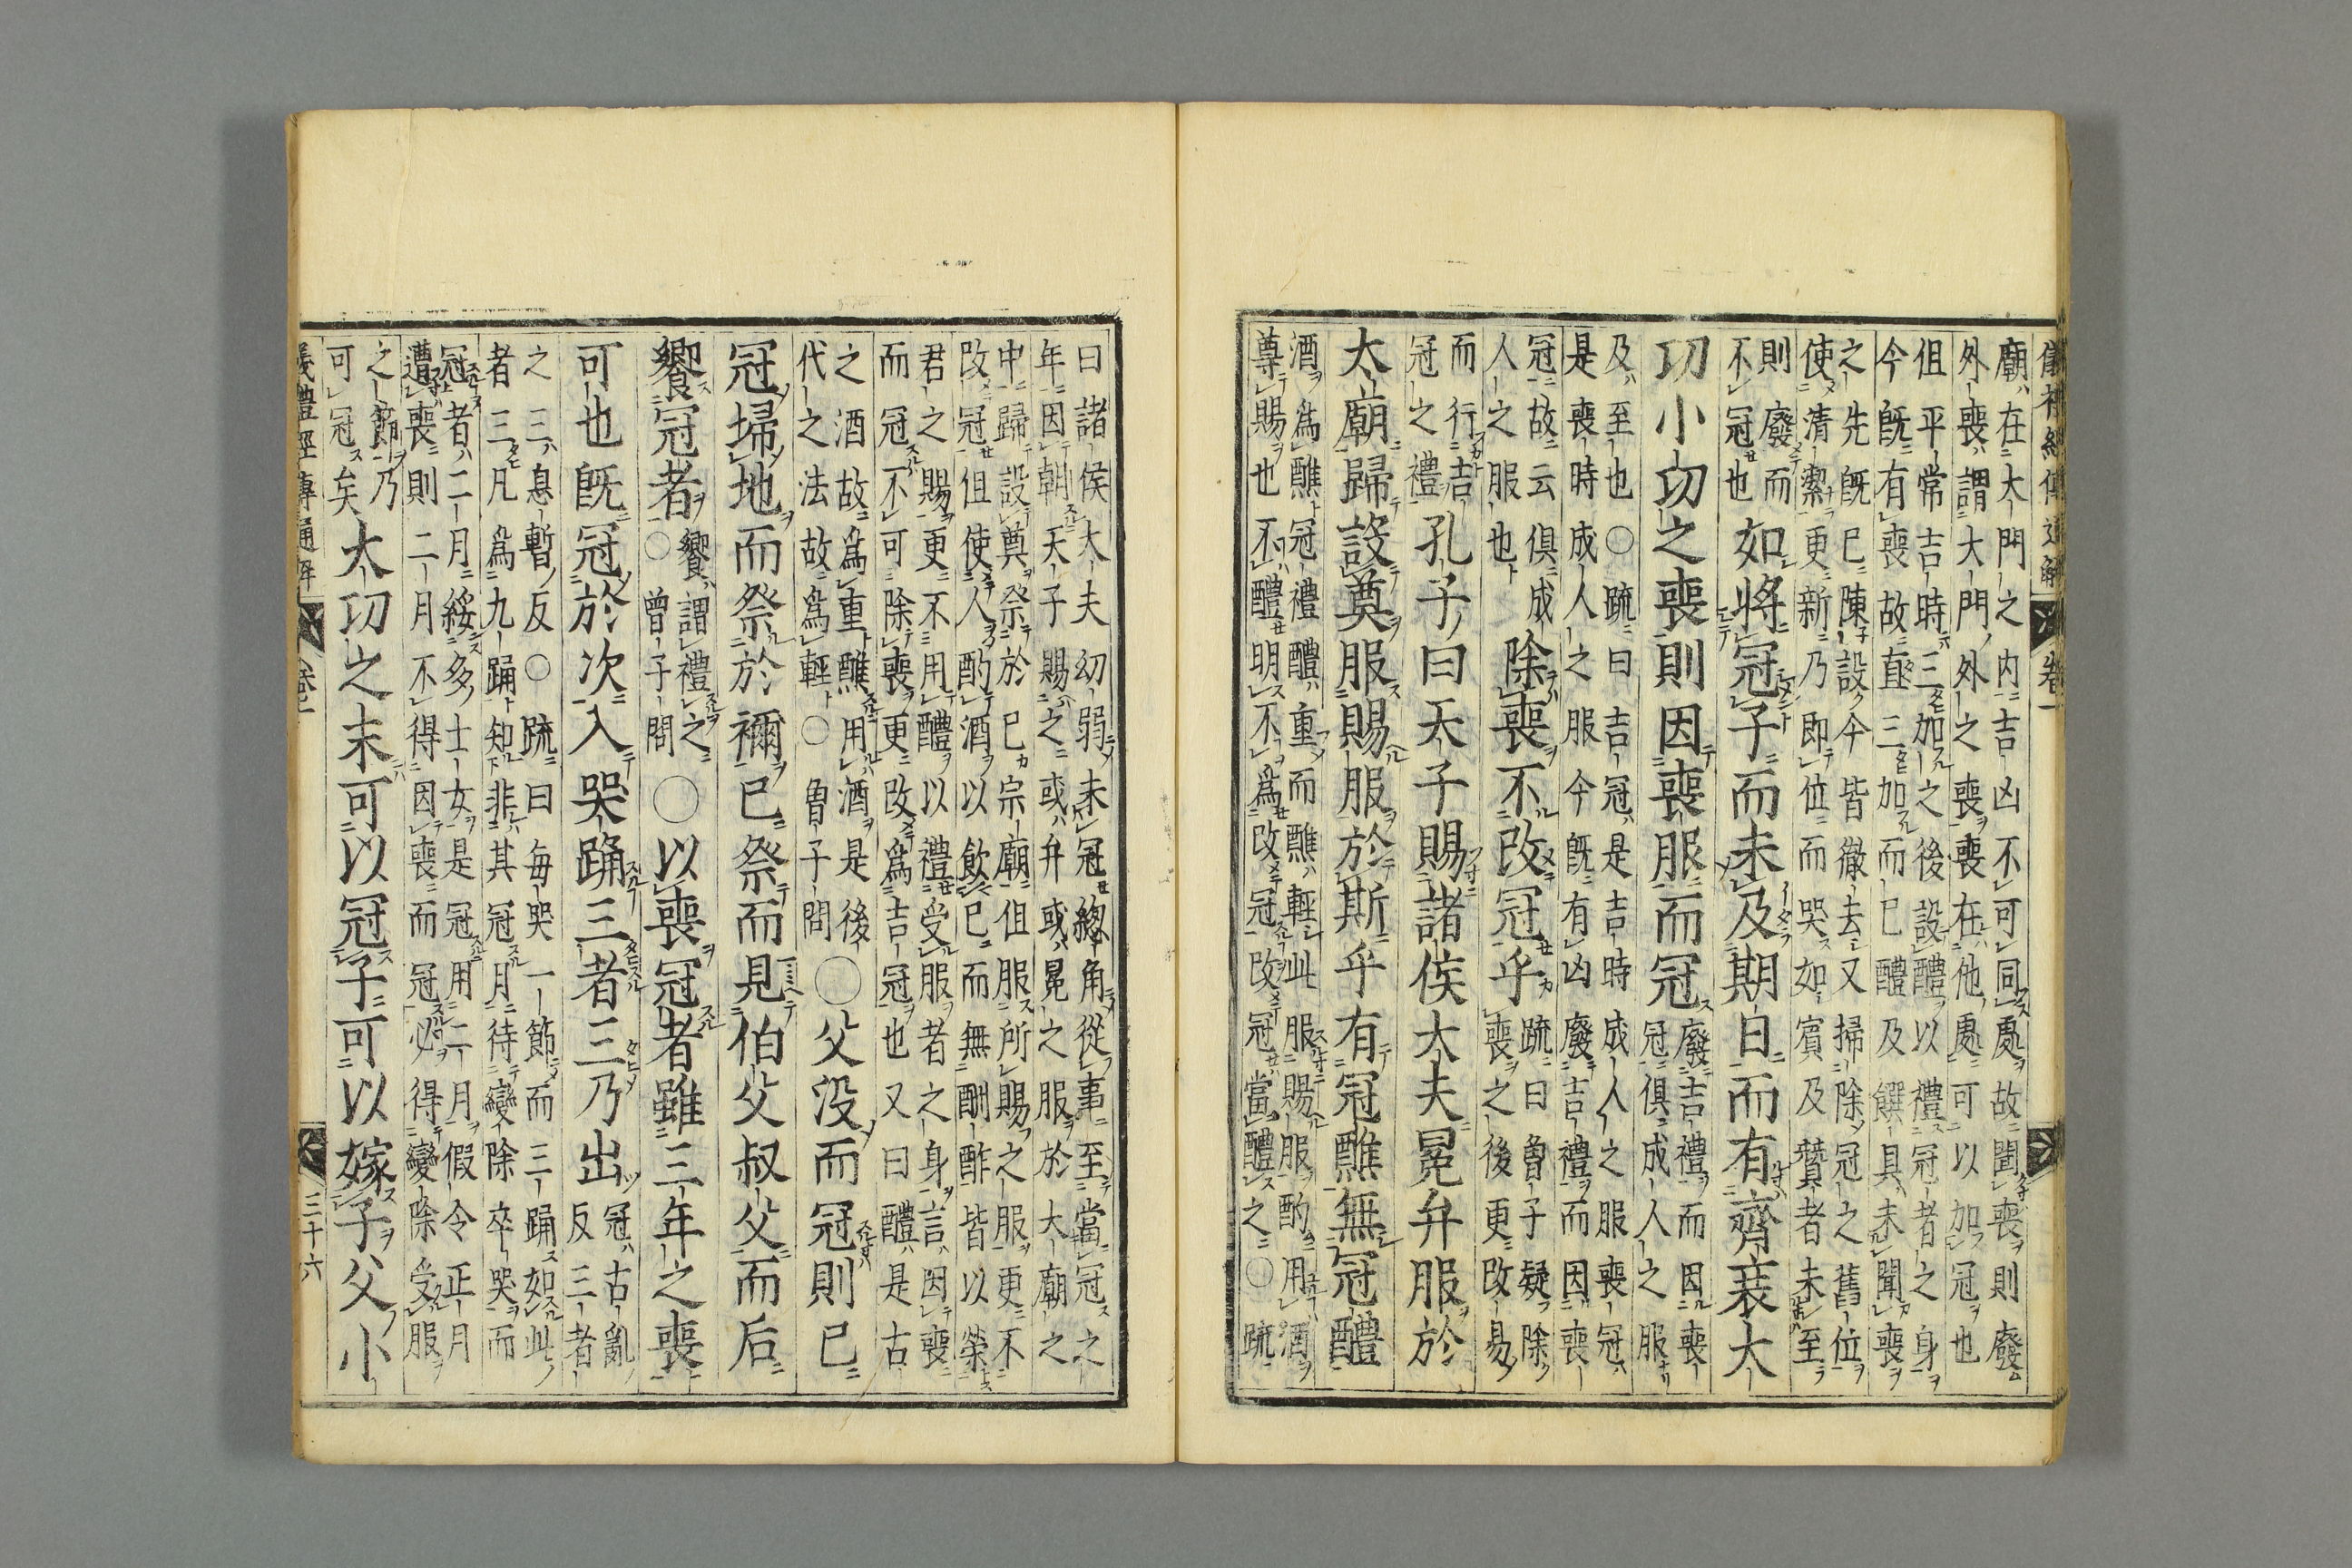 儀禮經傳通解 卷一
廟在大門之内吉凶不可同處故聞喪則廢
外喪謂大門外之喪喪在他處可以加冠也
但平常吉時三加之後設醴以禮冠者之身
今既有喪故直三加而已醴及饌具未聞喪
之先既已陳設今皆徹去又掃除冠之舊位
使清潔更新乃即位而哭如賓及贊者未至
則廢而
不冠也
如將冠子而未及期日而有齊衰大
功小功之喪則因喪服而冠
廢吉禮而因喪
冠俱成人之服
及至也○疏曰吉冠是吉時成人之服喪冠
是喪時成人之服今既有凶廢吉禮而因喪
冠故云俱成
人之服也
除喪不改冠乎
疏曰魯子疑除
喪之後更改易
而行吉
冠之禮
孔子曰天子賜諸侯大夫冕弁服於
太廟歸設奠服賜服於斯乎有冠醮無冠醴
酒為醮冠禮醴重而醮輕此服賜服酌用酒
尊賜也不醴明不為改冠改冠當醴之○疏
曰諸侯大夫幼弱未冠總角從事至當冠之
年因朝天子賜之或弁或冕之服於大廟之
中歸設奠祭於已宗廟但服所賜之服更不
改冠但使人酌酒以飲已而無酬酢皆以榮
君之賜更不用醴以禮受服者之身言因喪
而冠不可除喪更改為吉冠也又曰醴是古
之酒故為重醮用酒是後
代之法故為輕○魯子問
○父没而冠則已
冠埽地而祭於禰已祭而見伯父叔父而后
饗冠者
饗謂禮之
○曾子問
○以喪冠者雖三年之喪
可也既冠於次入哭踊三者三乃出
冠古亂
反三者
之三息暫反○疏曰每哭一節而三踊如此
者三凡為九踊知非其冠月待變除卒哭而
冠者二月綏多士女是冠用二月假令正月
遭喪則二月不得因喪而冠必得變除受服
之節乃
可冠矣
大功之末可以冠子可以嫁子父小
儀禮經傳通解 卷一 三十六